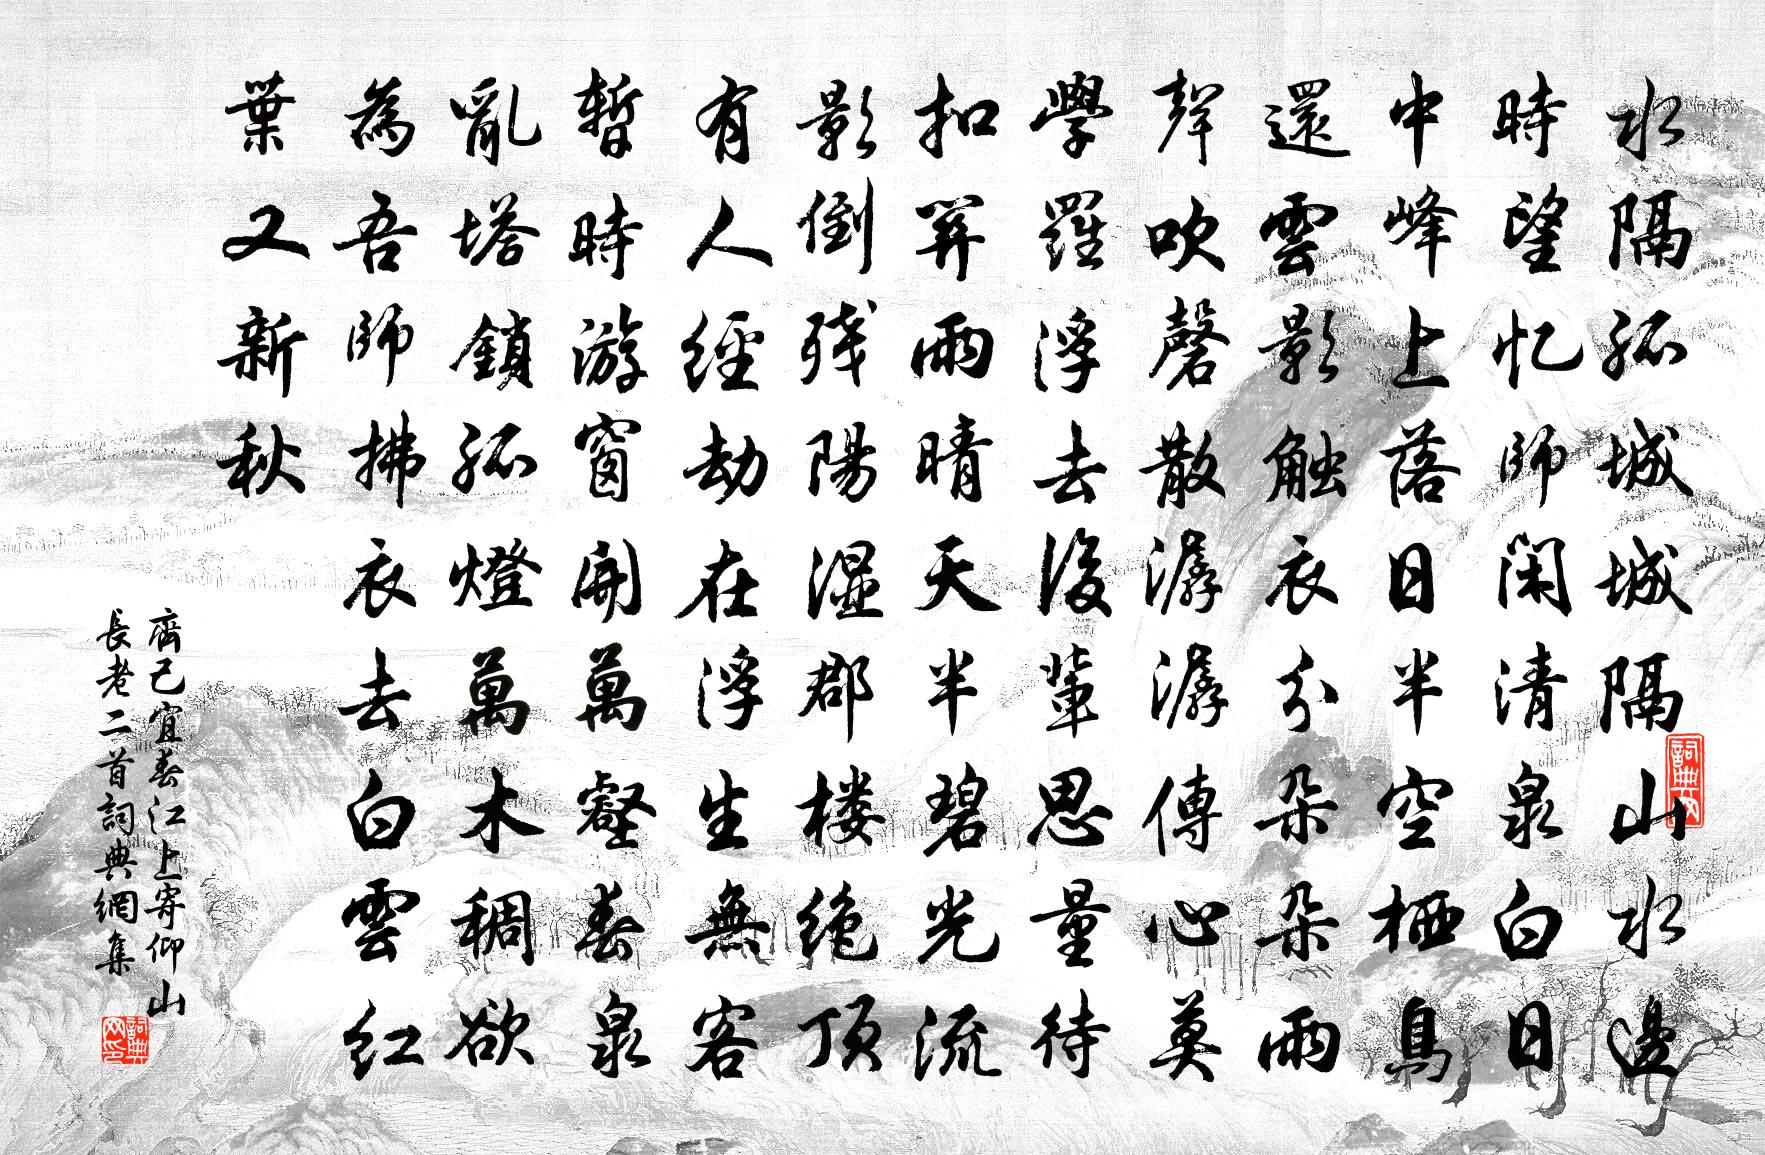 水隔孤城城隔山水邊
時望忆師閑清泉白日
中峰上落日半空栖鳥
還雲影触衣分朵朵雨
聲吹磬散潺潺傳心莫
學羅浮去後輩思量待
扣笄雨晴天半碧光流
影倒残陽湿郡楼绝頂
有人經劫在浮生無客
暫時游窗開萬壑春泉
亂塔鎖孤燈萬木稠欲
為吾師拂衣去白雲紅
葉又新秋
齊己宜春江上寄仰山
長老二首詞典網集
詞典网
詞典网印